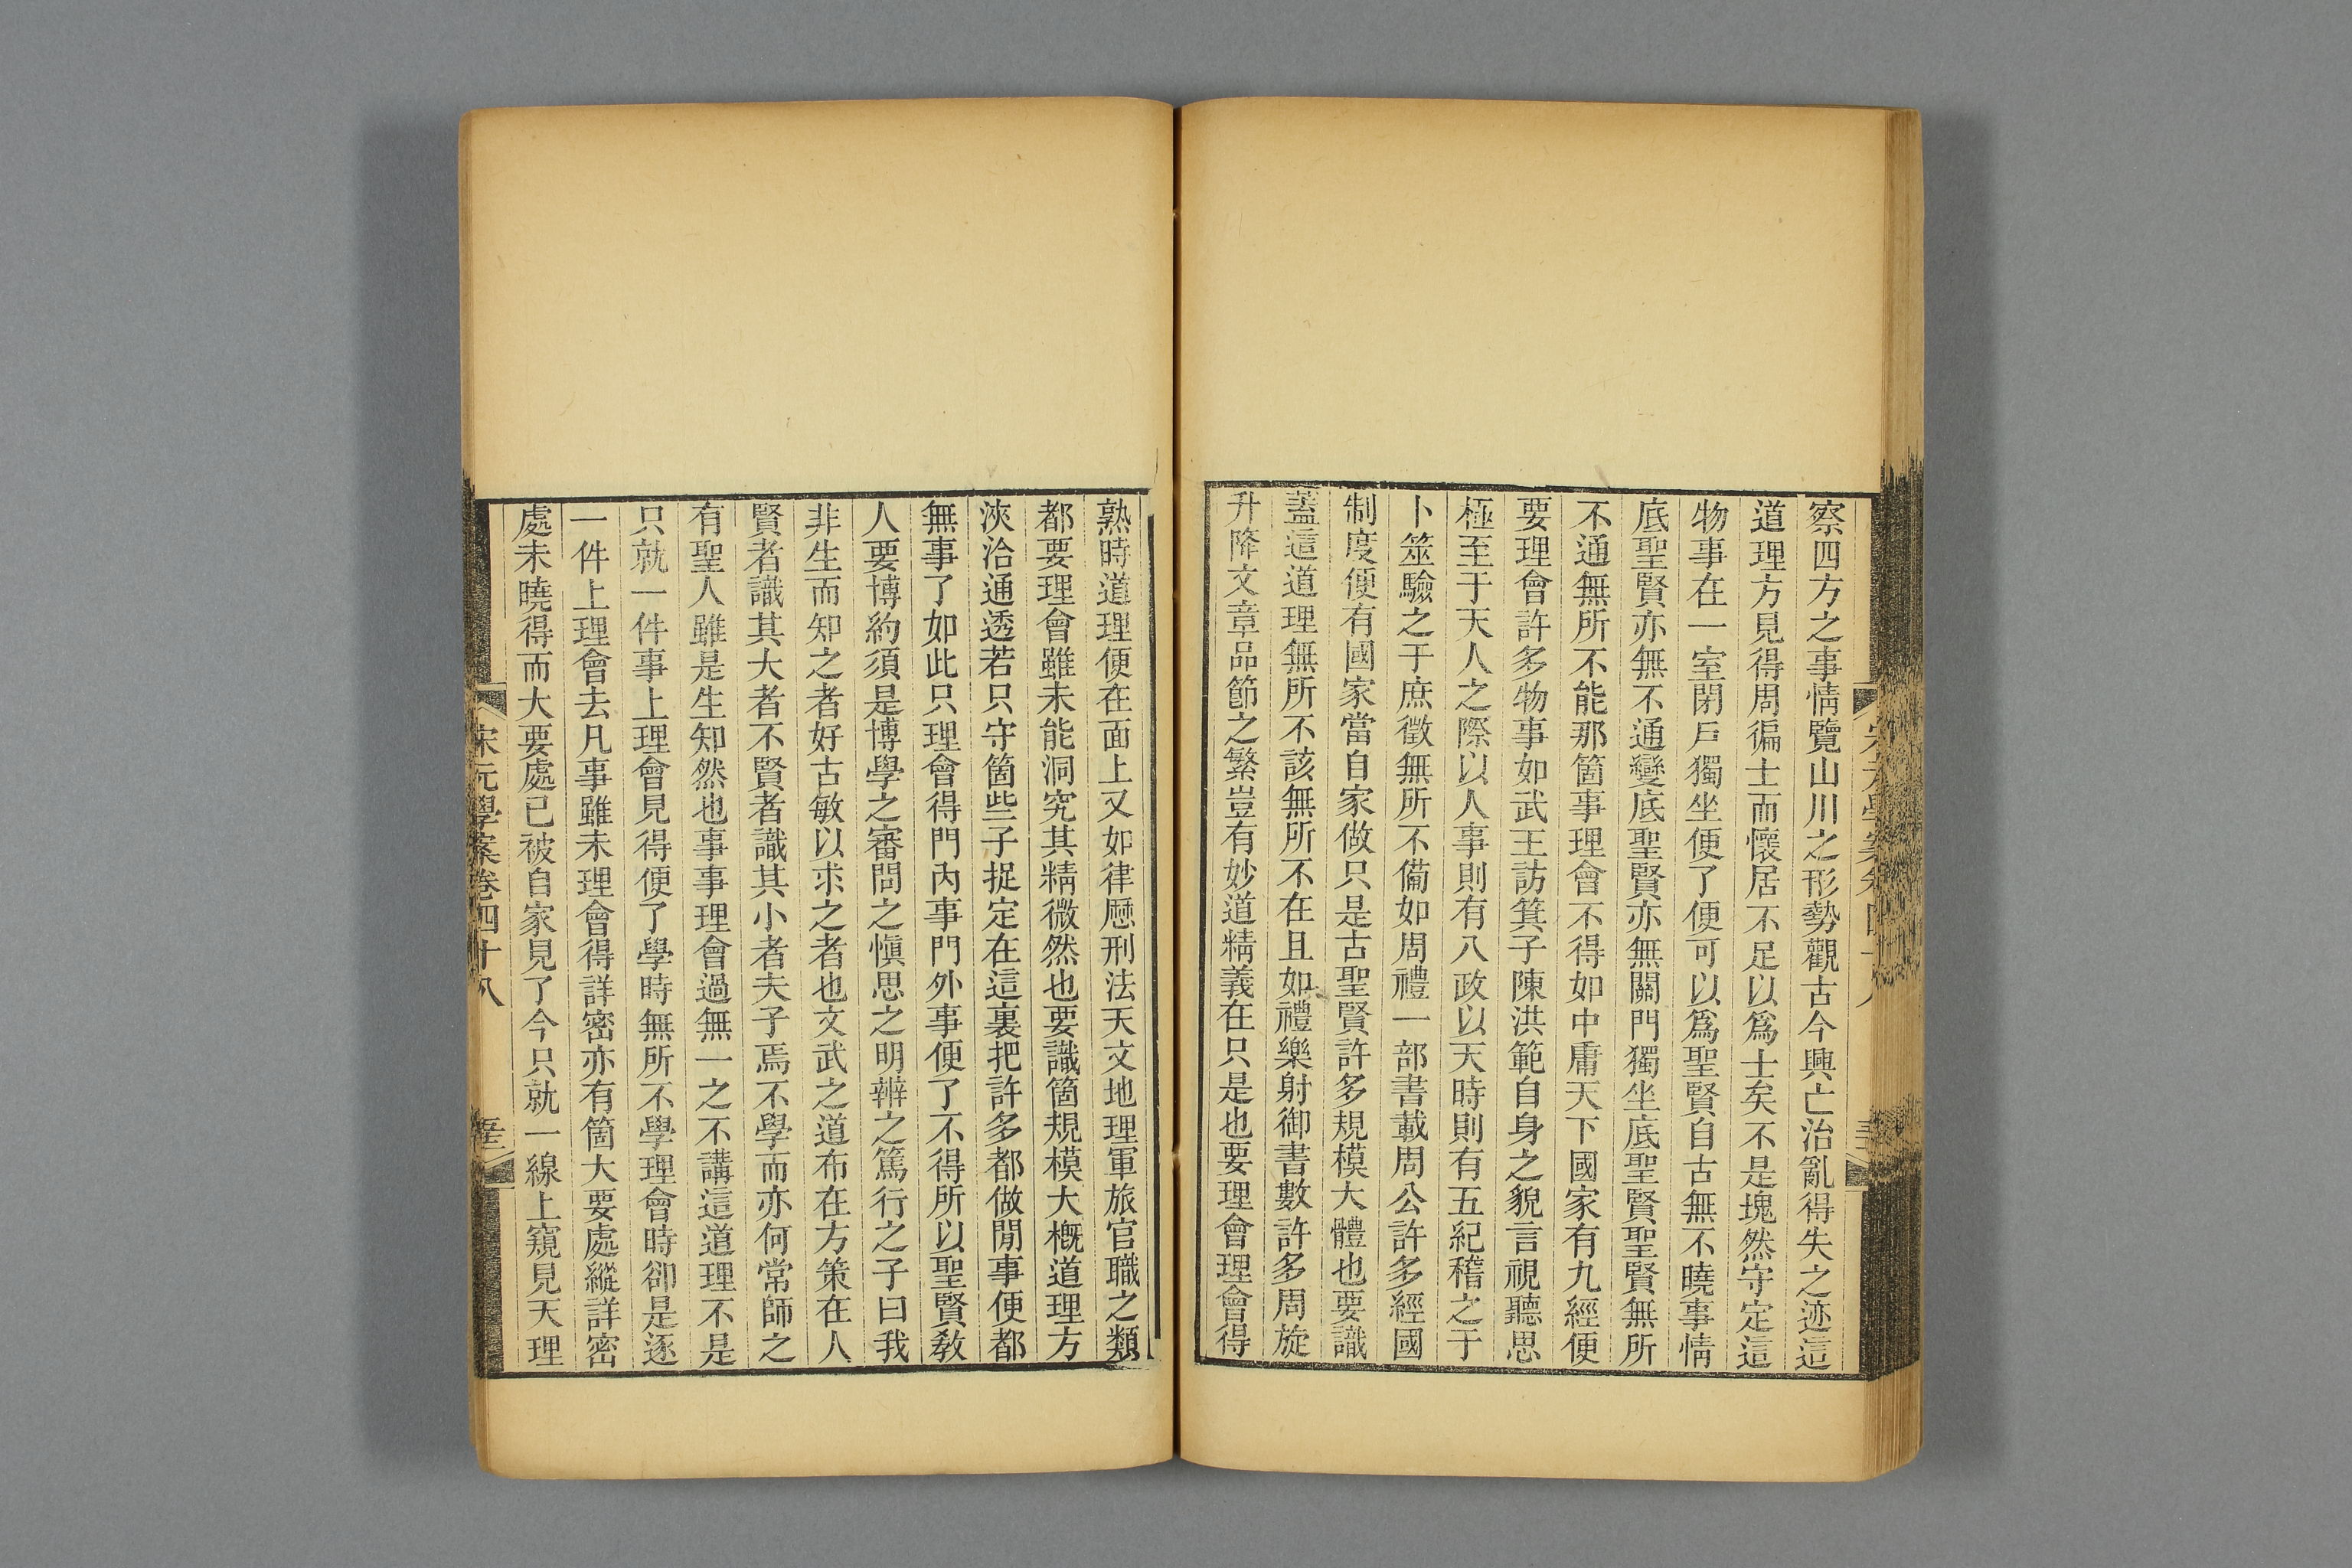 察四方之事情覽山川之形勢觀古今興亡治亂得失之迹這
道理方見得周徧士而懷居不足以爲士矣不是塊然守定這
物事在一室閉戶獨坐便了便可以爲聖賢自古無不曉事情
底聖賢亦無不通變底聖賢亦無關門獨坐底聖賢聖賢無所
不通無所不能那箇事理會不得如中庸天下國家有九經便
要理會許多物事如武王訪箕子陳洪範自身之貌言視聽思
極至于天人之際以人事則有八政以天時則有五紀稽之于
卜筮驗之于庶徵無所不備如周禮一部書載周公許多經國
制度便有國家當自家做只是古聖賢許多規模大體也要識
蓋這道理無所不該無所不在且如禮樂射御書數許多周旋
升降文章品節之繁豈有妙道精義在只是也要理會理會得
熟時道理便在面上又如律厯刑法天文地理軍旅官職之類
都要理會雖未能洞究其精微然也要識箇規模大概道理方
浹洽通透若只守箇些子捉定在這裏把許多都做閒事便都
無事了如此只理會得門內事門外事便了不得所以聖賢敎
人要博約須是博學之審問之愼思之明辨之篤行之子曰我
非生而知之者好古敏以求之者也文武之道布在方策在人
賢者識其大者不賢者識其小者夫子焉不學而亦何常師之
有聖人雖是生知然也事事理會過無一之不講這道理不是
只就一件事上理會見得便了學時無所不學理會時卻是逐
一件上理會去凡事雖未理會得詳密亦有箇大要處縱詳密
處未曉得而大要處已被自家見了今只就一線上窺見天理
宋元學案卷四十八